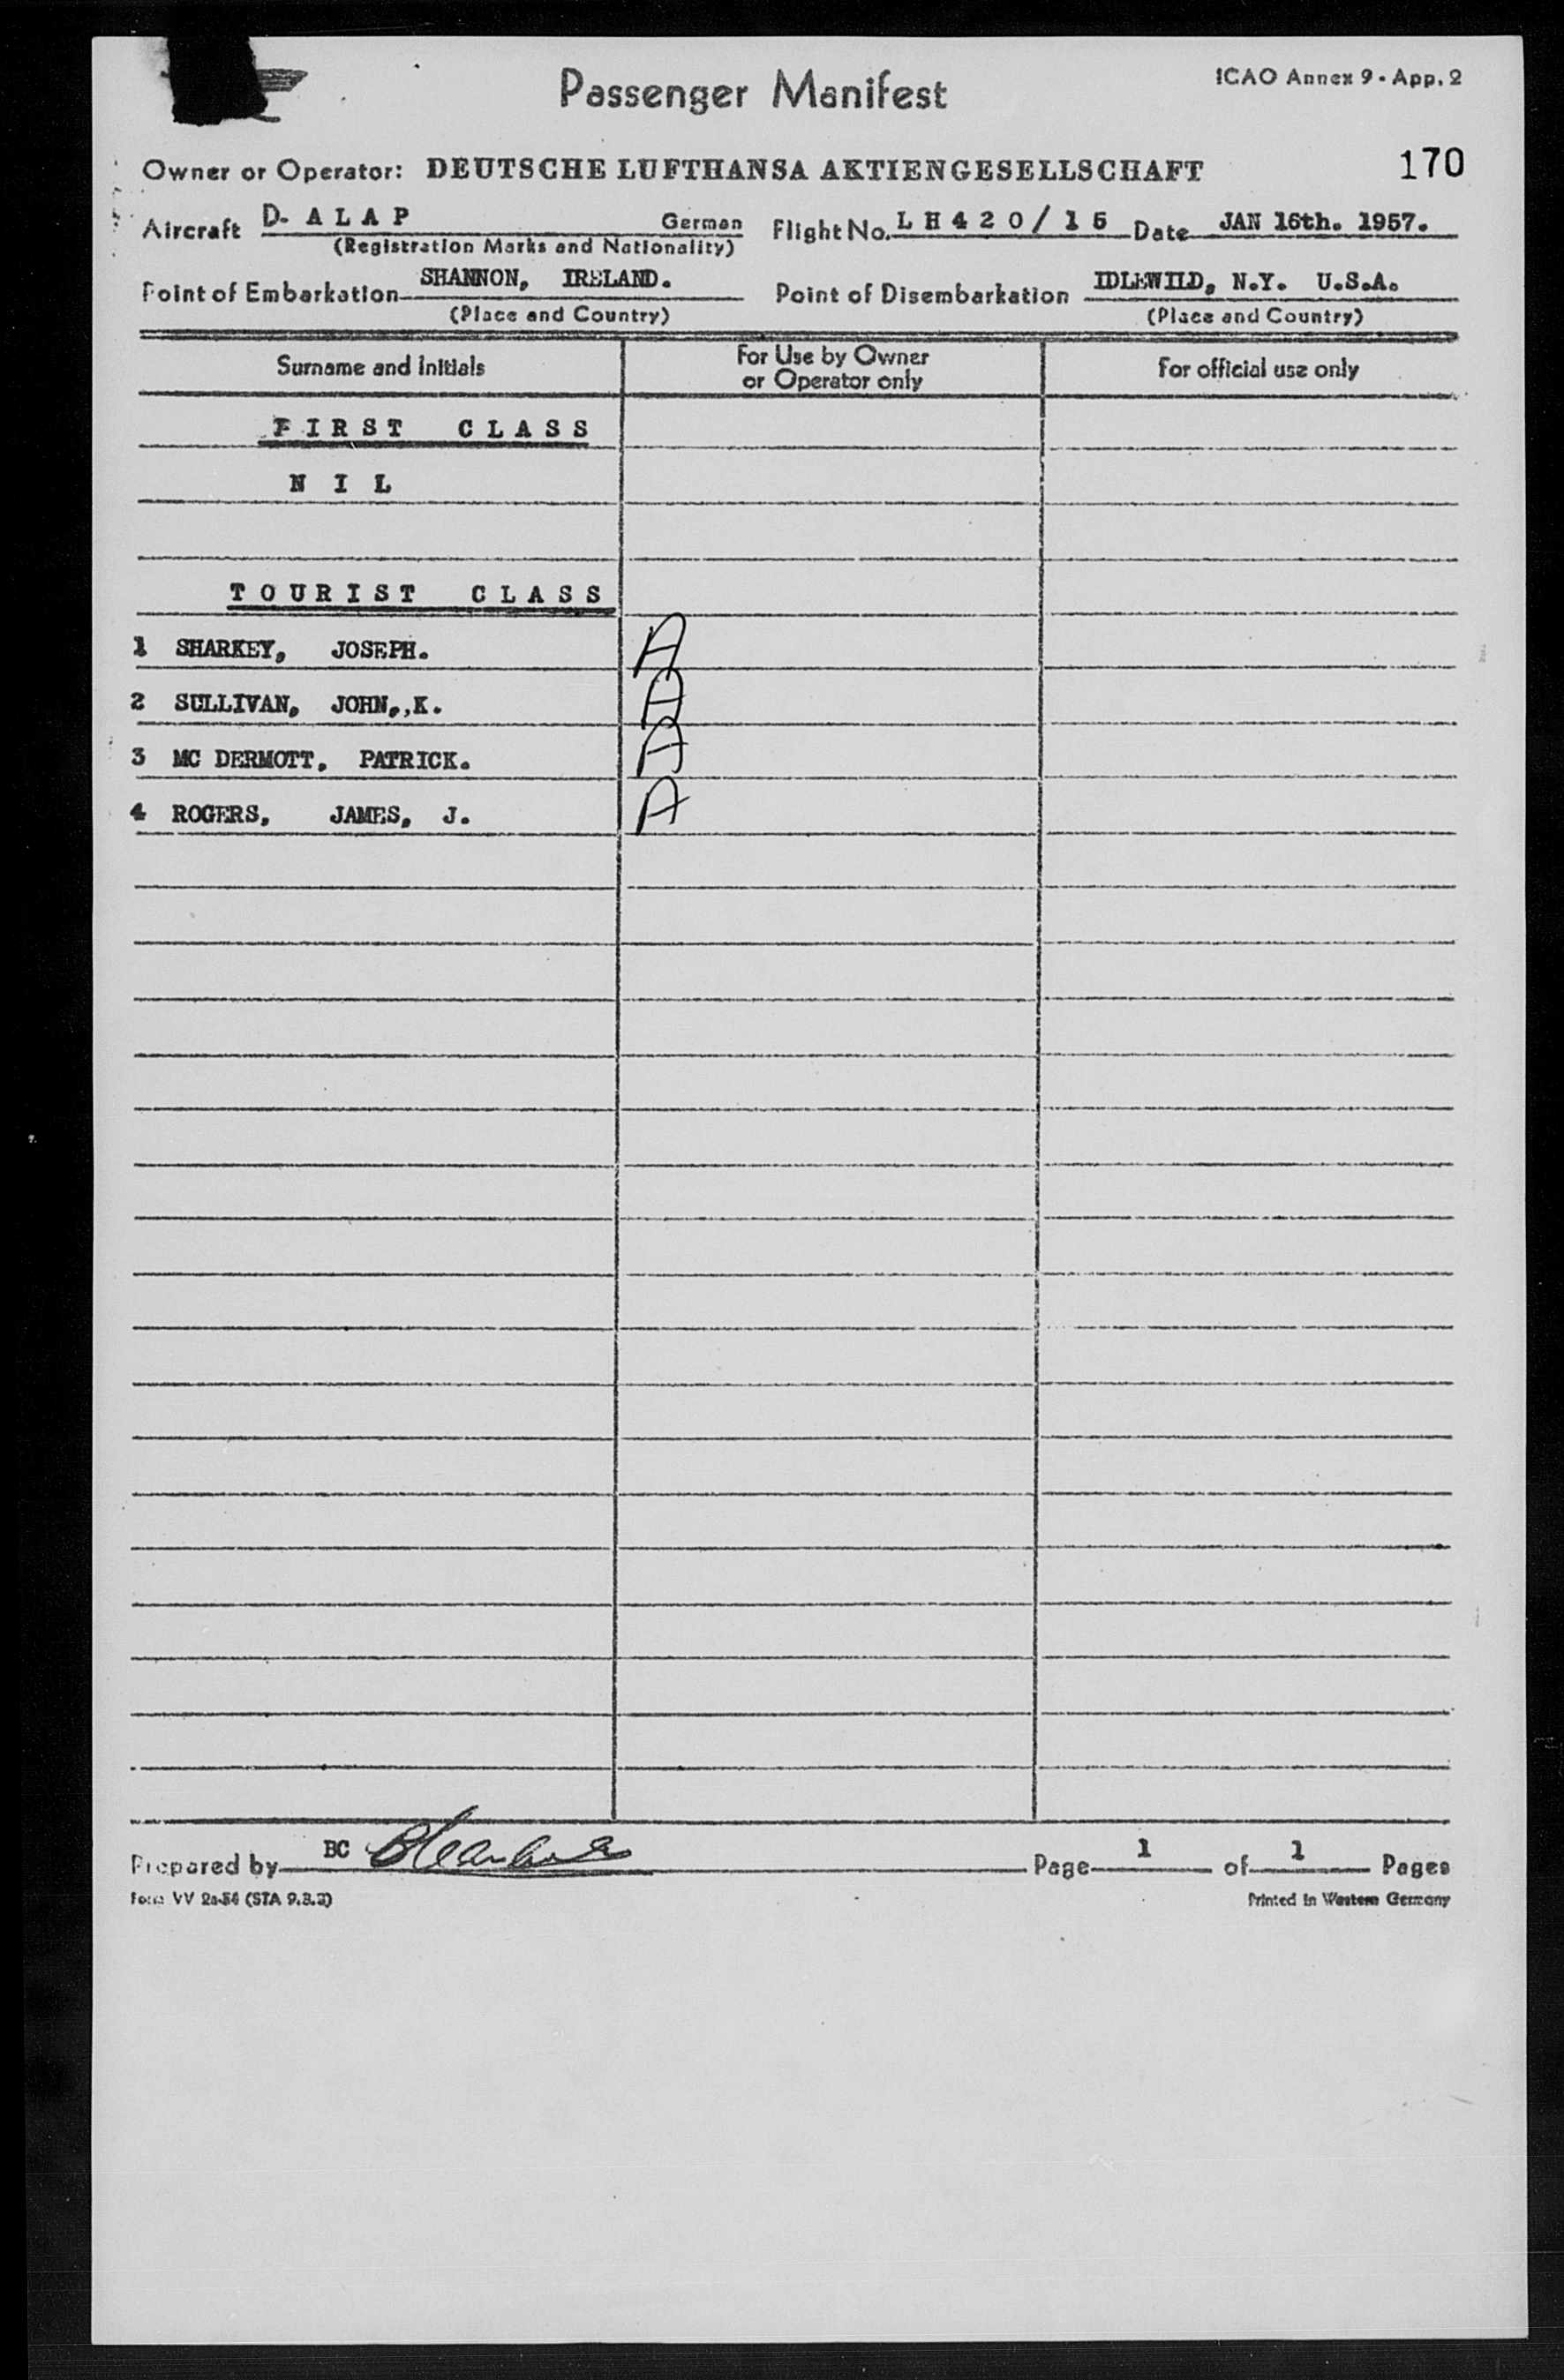 Passenger Manifest
ICAO Annex 9 - App. 2
170
Owner or Operator: DEUTSCHE LUFTHANSA AKTIENGESELLSCHAFT
Aircraft D- A L A P German Flight No. L H 4 2 0 / 1 5 Date JAN 16th. 1957.
(Registration Marks and Nationality)
Point of Embarkation SHANNON, IRELAND. Point of Disembarkation IDLEWILD, N.Y. U.S.A.
(Place and Country) (Place and Country)
Surname and Initials For Use by Owner or Operator only For official use only
F I R S T C L A S S
N I L
T O U R I S T C L A S S
1 SHARKEY, JOSEPH. A
2 SULLIVAN, JOHN,,K. A
3 MC DERMOTT, PATRICK. A
4 ROGERS, JAMES, J. A
Prepared by BC Page 1 of 1 Pages
Form VV 2a-54 (STA 9.3.2) Printed in Western Germany